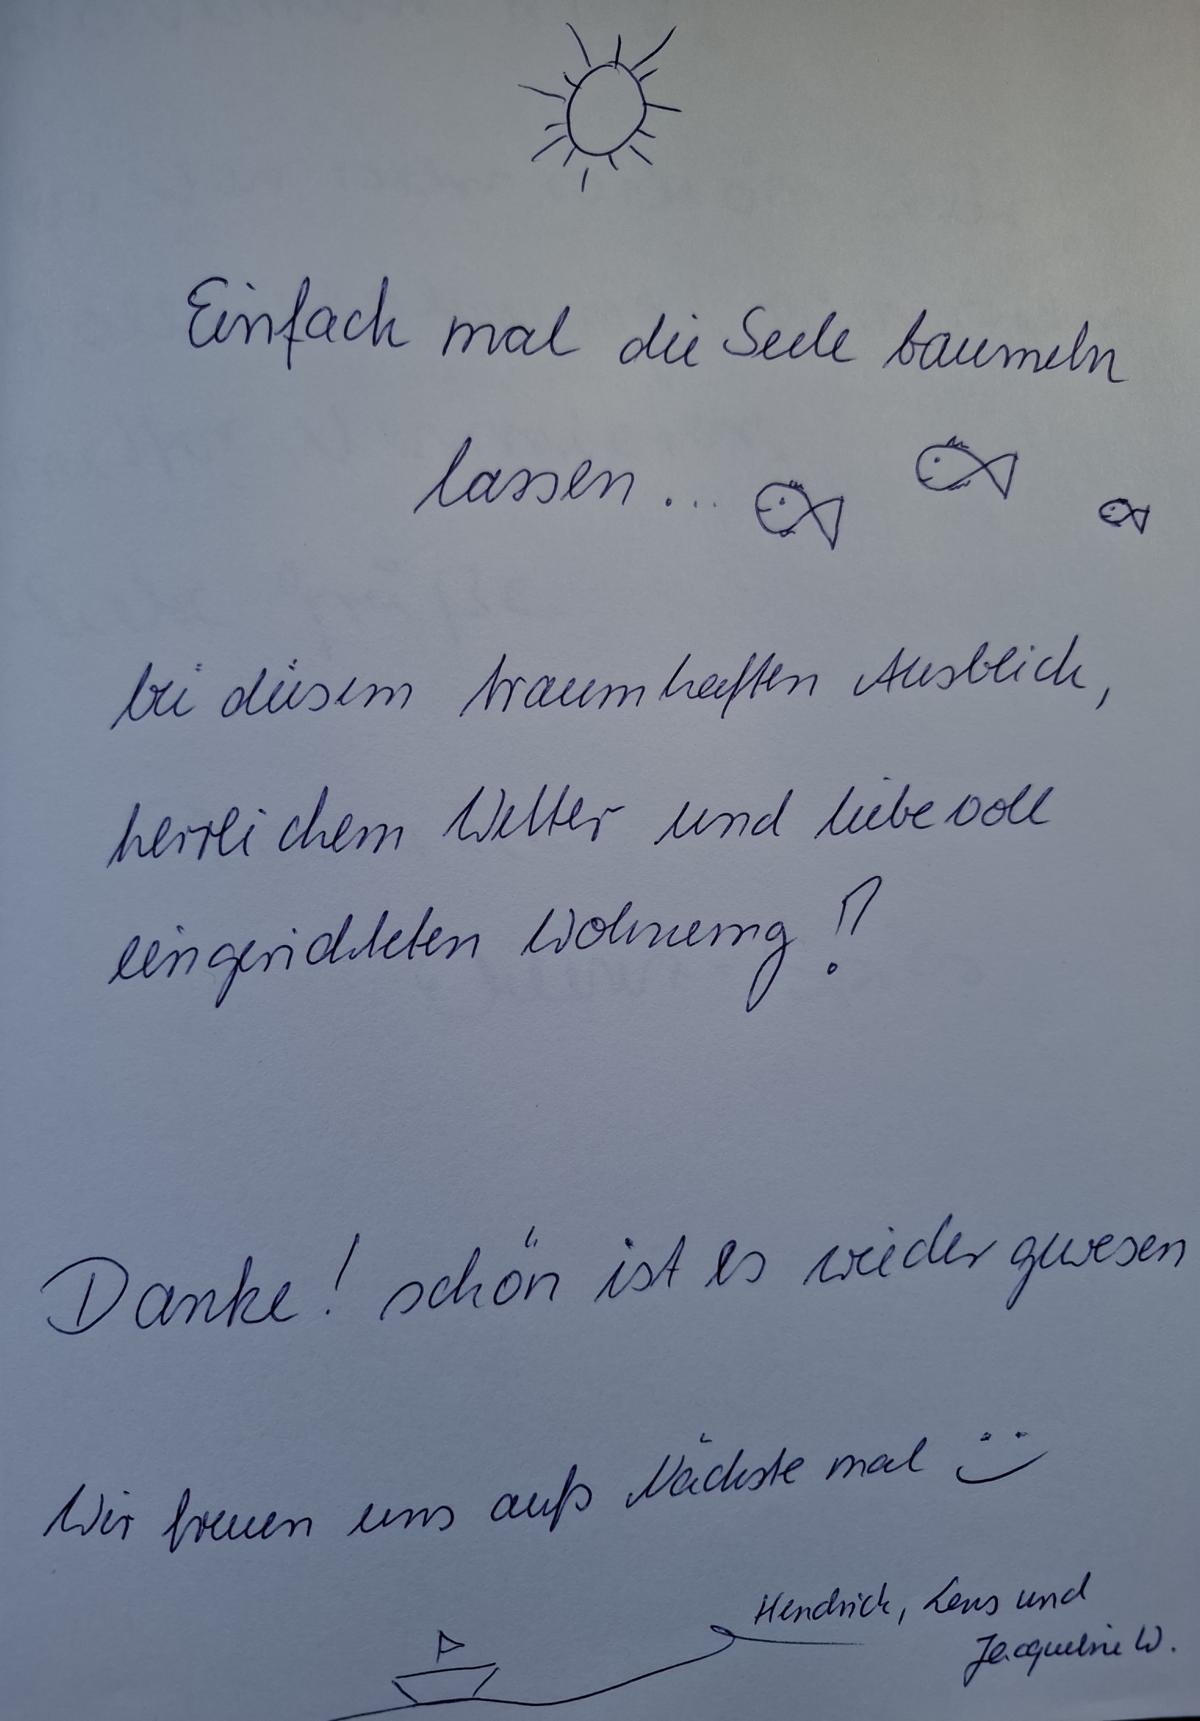 Einfach mal die Seele baumeln
lassen...
bei diesem traumhaften Ausblick,
herrlichem Wetter und liebevoll
eingerichteten Wohnung!!
Danke! schön ist es wieder gewesen
Wir freuen uns aufs Nächste mal
Hendrick, Lens und
Jacqueline W.